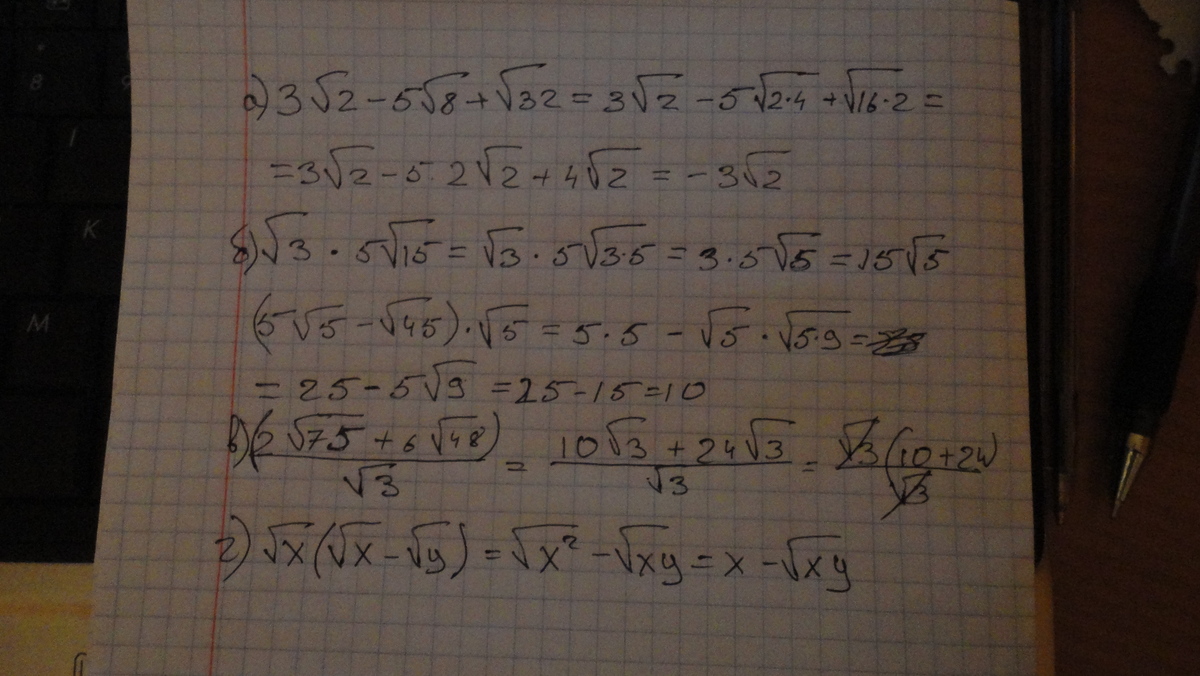 а) 3√2 - 5√8 + √32 = 3√2 - 5√2·4 + √16·2 =
= 3√2 - 5·2√2 + 4√2 = -3√2
б) √3 · 5√15 = √3 · 5√3·5 = 3·5√5 = 15√5
(5√5 - √45)·√5 = 5·5 - √5·√5·9 =
= 25 - 5√9 = 25 - 15 = 10
в) (2√75 + 6√48)/√3 = (10√3 + 24√3)/√3 = √3(10+24)/√3
г) √x(√x - √y) = √x² - √xy = x - √xy
I
8
K
M